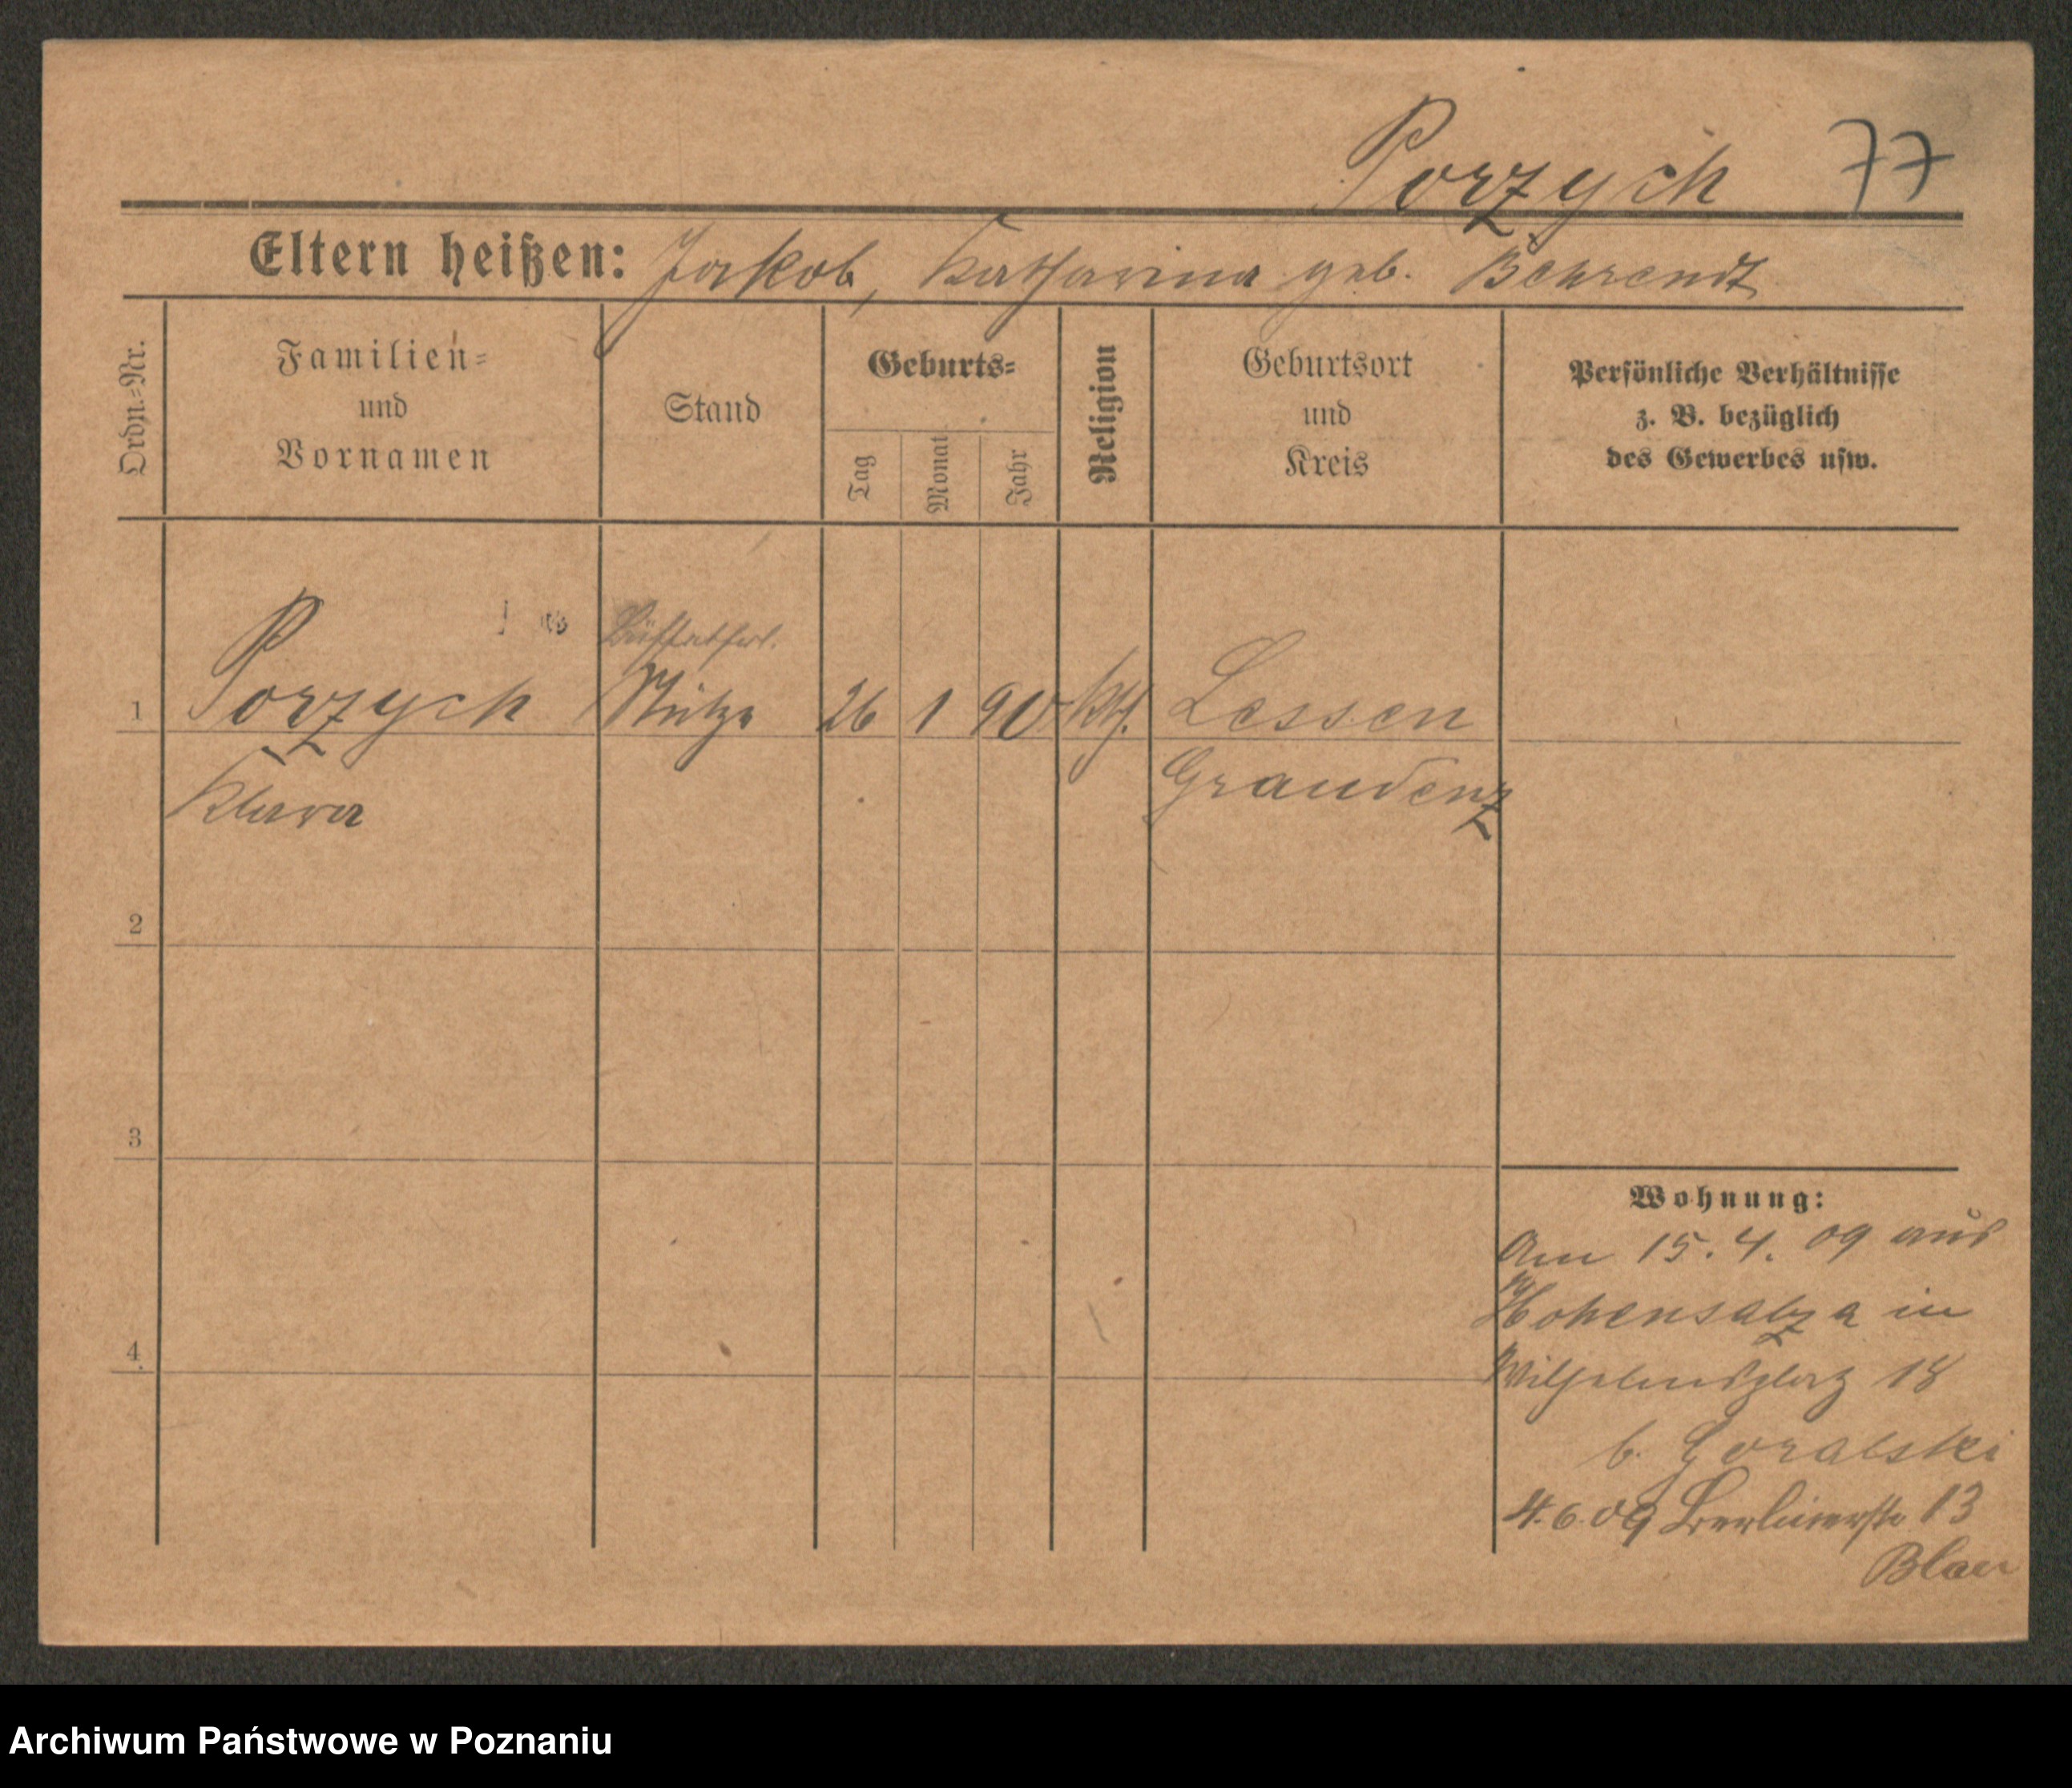 Porzych 77
Eltern heißen: Jakob, Katharina geb. Behrendt
Ordn.-Nr.
Familien-
und
Vornamen
Stand
Geburts-
Tag
Monat
Jahr
Religion
Geburtsort
und
Kreis
Persönliche Verhältnisse
z. B. bezüglich
des Gewerbes usw.
Büffetfrl.
1 Porzych Stütze 26 1 90 kth. Lessen
Klara Graudenz
2
3
4
Wohnung:
Am 15.4.09 aus
Hohensalza in
Wilhelmsplatz 18
b. Goralski
4.6.09 Berlinerstr 13
Blau
Archiwum Państwowe w Poznaniu